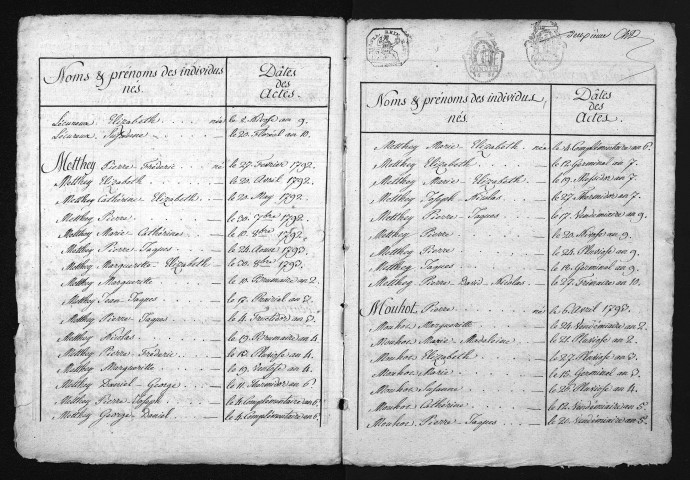 Noms & prénoms des individus
nés.
Dâtes
des
Actes.
Lécureux Elizabeth née le 2 Nivose an 9.
Lécureux Suzanne le 20 Floréal an 10.
Metthey Pierre Fréderic né le 27 Fevrier 1792.
Metthey Elizabeth le 20 Avril 1792.
Metthey Cathérine Elizabeth le 20 May 1792.
Metthey Pierre le 30 7bre 1792.
Metthey Marie Cathérine le 10 8bre 1792.
Metthey Pierre Jaques le 24 Aoust 1793.
Metthey Margueritte Elizabeth le 30 8bre 1793.
Metthey Margueritte le 10 Brumaire an 2.
Metthey Jean Jaques le 17 Prairial an 3.
Metthey Pierre Jaques le 4 Fructidor an 3.
Metthey Nicolas le 19 Brumaire an 4.
Metthey Pierre Fréderic le 12 Pluviose an 4.
Metthey Margueritte le 19 Ventose an 4.
Metthey Daniel George le 11 Thermidor an 6.
Metthey Pierre Joseph le 4 Complémentaire an 6.
Metthey George Daniel le 4 Complémentaire an 6.
Noms & prénoms des individus
nés.
Dâtes
des
Actes.
Metthey Marie Elizabeth née le 4 Complémentaire an 6.
Metthey Elizabeth le 12 Germinal an 7.
Metthey Marie Elizabeth le 19 Messidor an 7.
Metthey Joseph Nicolas le 27 Thermidor an 7.
Metthey Pierre Jaques le 17 Vendémiaire an 9.
Metthey Pierre le 20 Nivose an 9.
Metthey Pierre le 24 Pluviose an 9.
Metthey Jaques le 18 Germinal an 9.
Metthey Pierre David Nicolas le 27 Frimaire an 10.
Mouhot Pierre né le 6 Avril 1793.
Mouhot Margueritte le 24 Vendémiaire an 2.
Mouhot Marie Madelaine le 21 Pluviose an 2.
Mouhot Elizabeth le 27 Pluviose an 3.
Mouhot Marie le 18 Germinal an 3.
Mouhot Suzanne le 20 Pluviose an 4.
Mouhot Cathérine le 12 Vendémiaire an 5.
Mouhot Pierre Jaques le 20 Vendémiaire an 5.